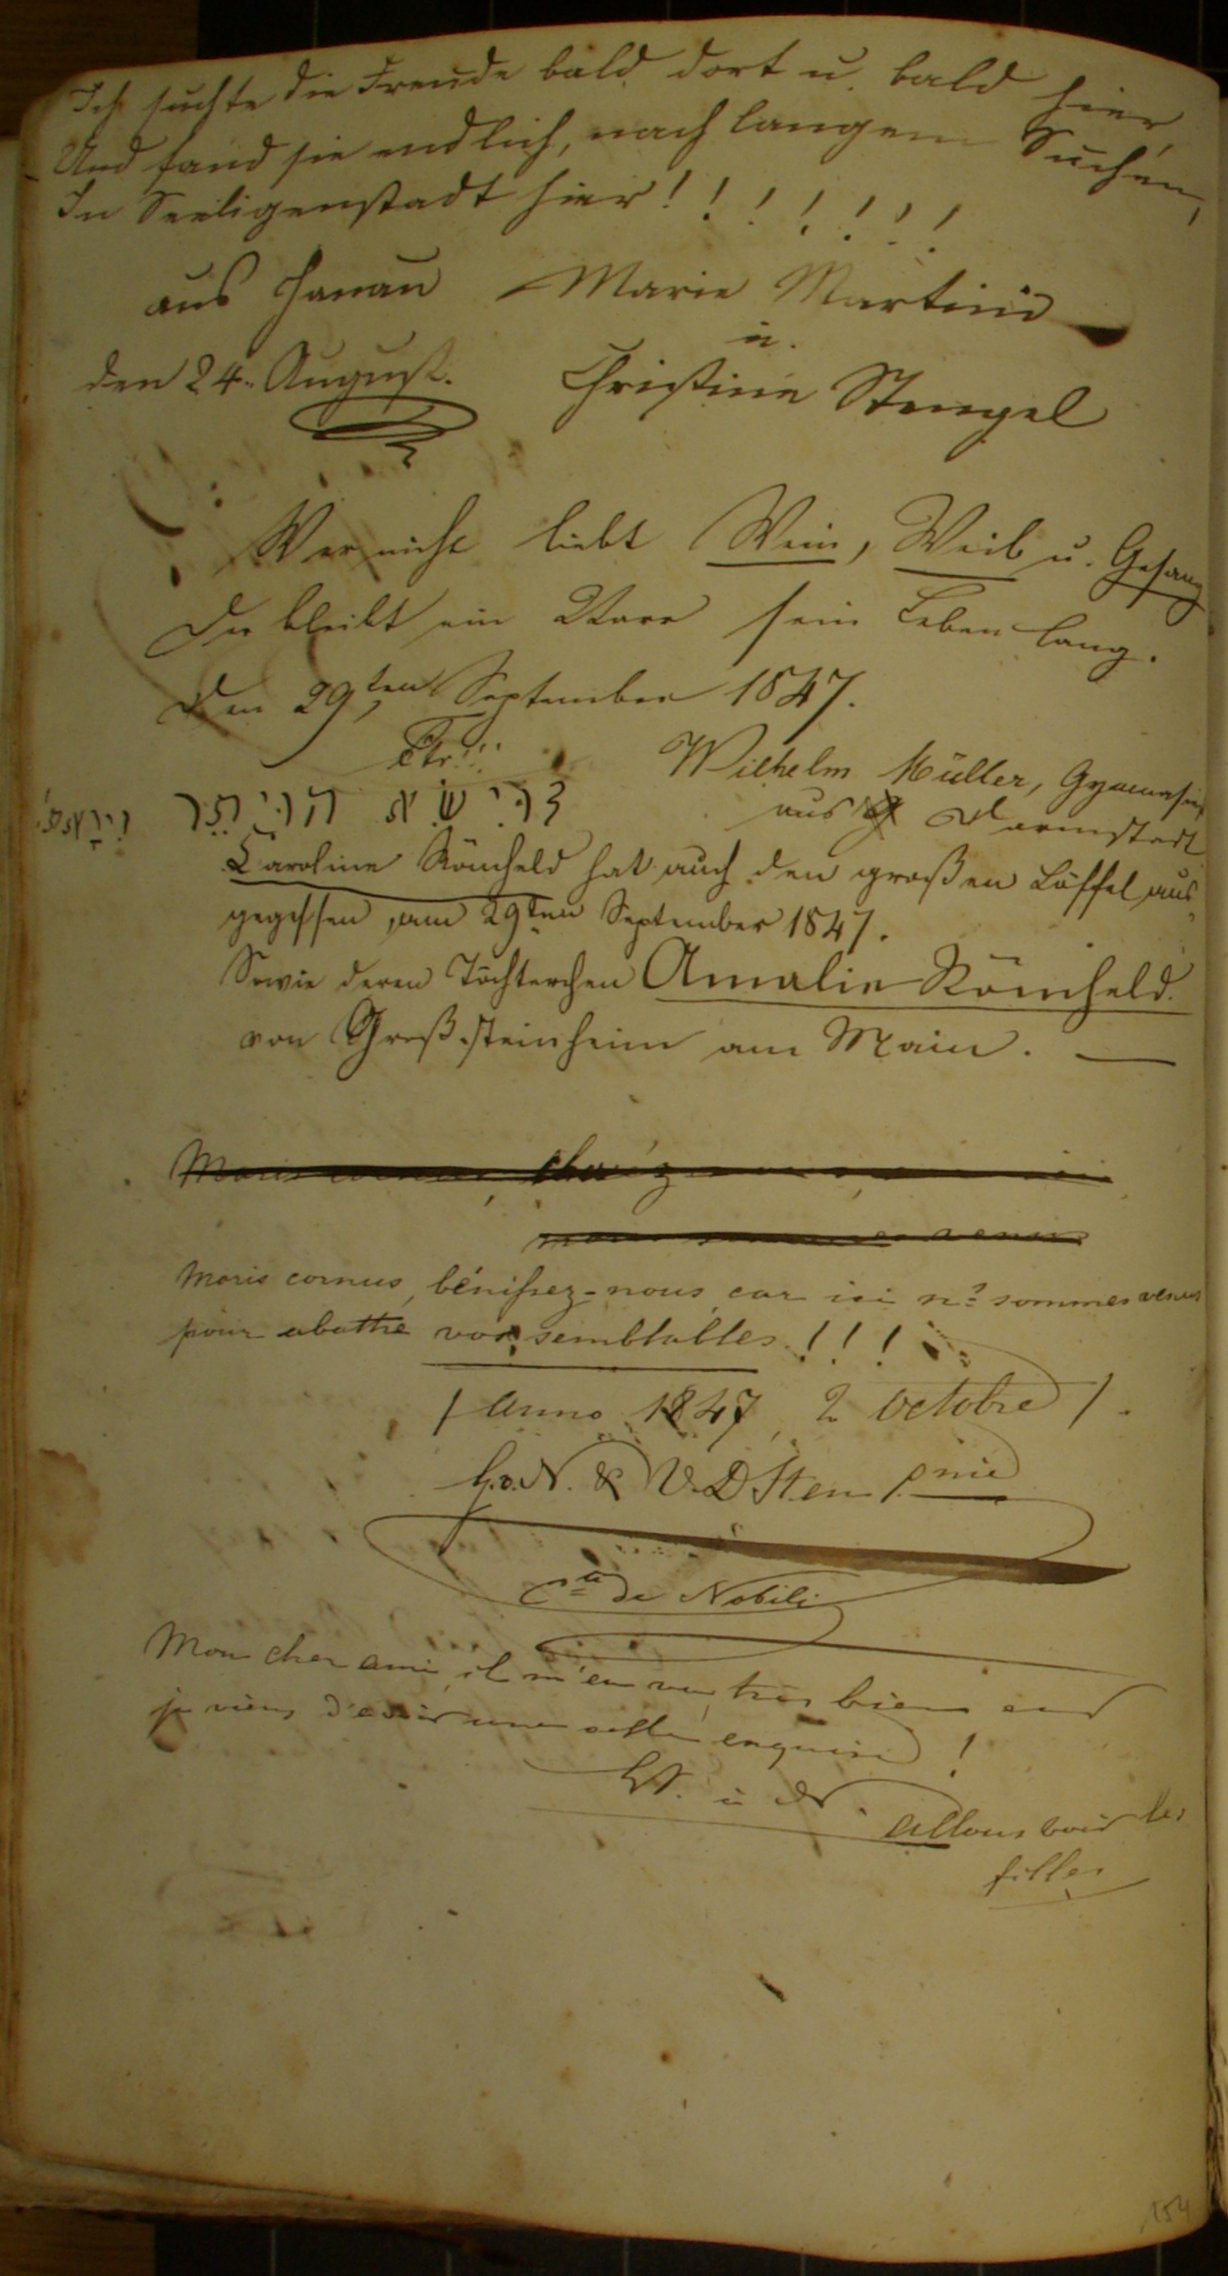 Ich suchte die Freude bald dort u. bald hier,
Und fand sie endlich, nach langem Suchen,
In Seeligenstadt hier! ! ! ! ! ! !
aus Hanau Marie Martini
u.
den 24. August. Christine Stengel
Wer nicht liebt Wein, Weib u. Gesang
Der bleibt ein Narr sein Leben lang.
Den 29ten September 1847.
Wilhelm Müller, Gymnasiast
aus Darmstadt
Caroline Römheld hat auch den großen Löffel aus-
gegessen, am 29ten September 1847.
Sowie deren Töchterchen Amalie Römheld.
von Groß-steinheim am Main.
Maris cornus, bénissez-nous car ici ns sommes venus
pour abattre vos semblables!!!
/ Anno 1847, 2 Octobre /.
de Nobili
Mon cher ami, il m'en va très bien car
je viens d'avoir une
allons voir les
filles
154